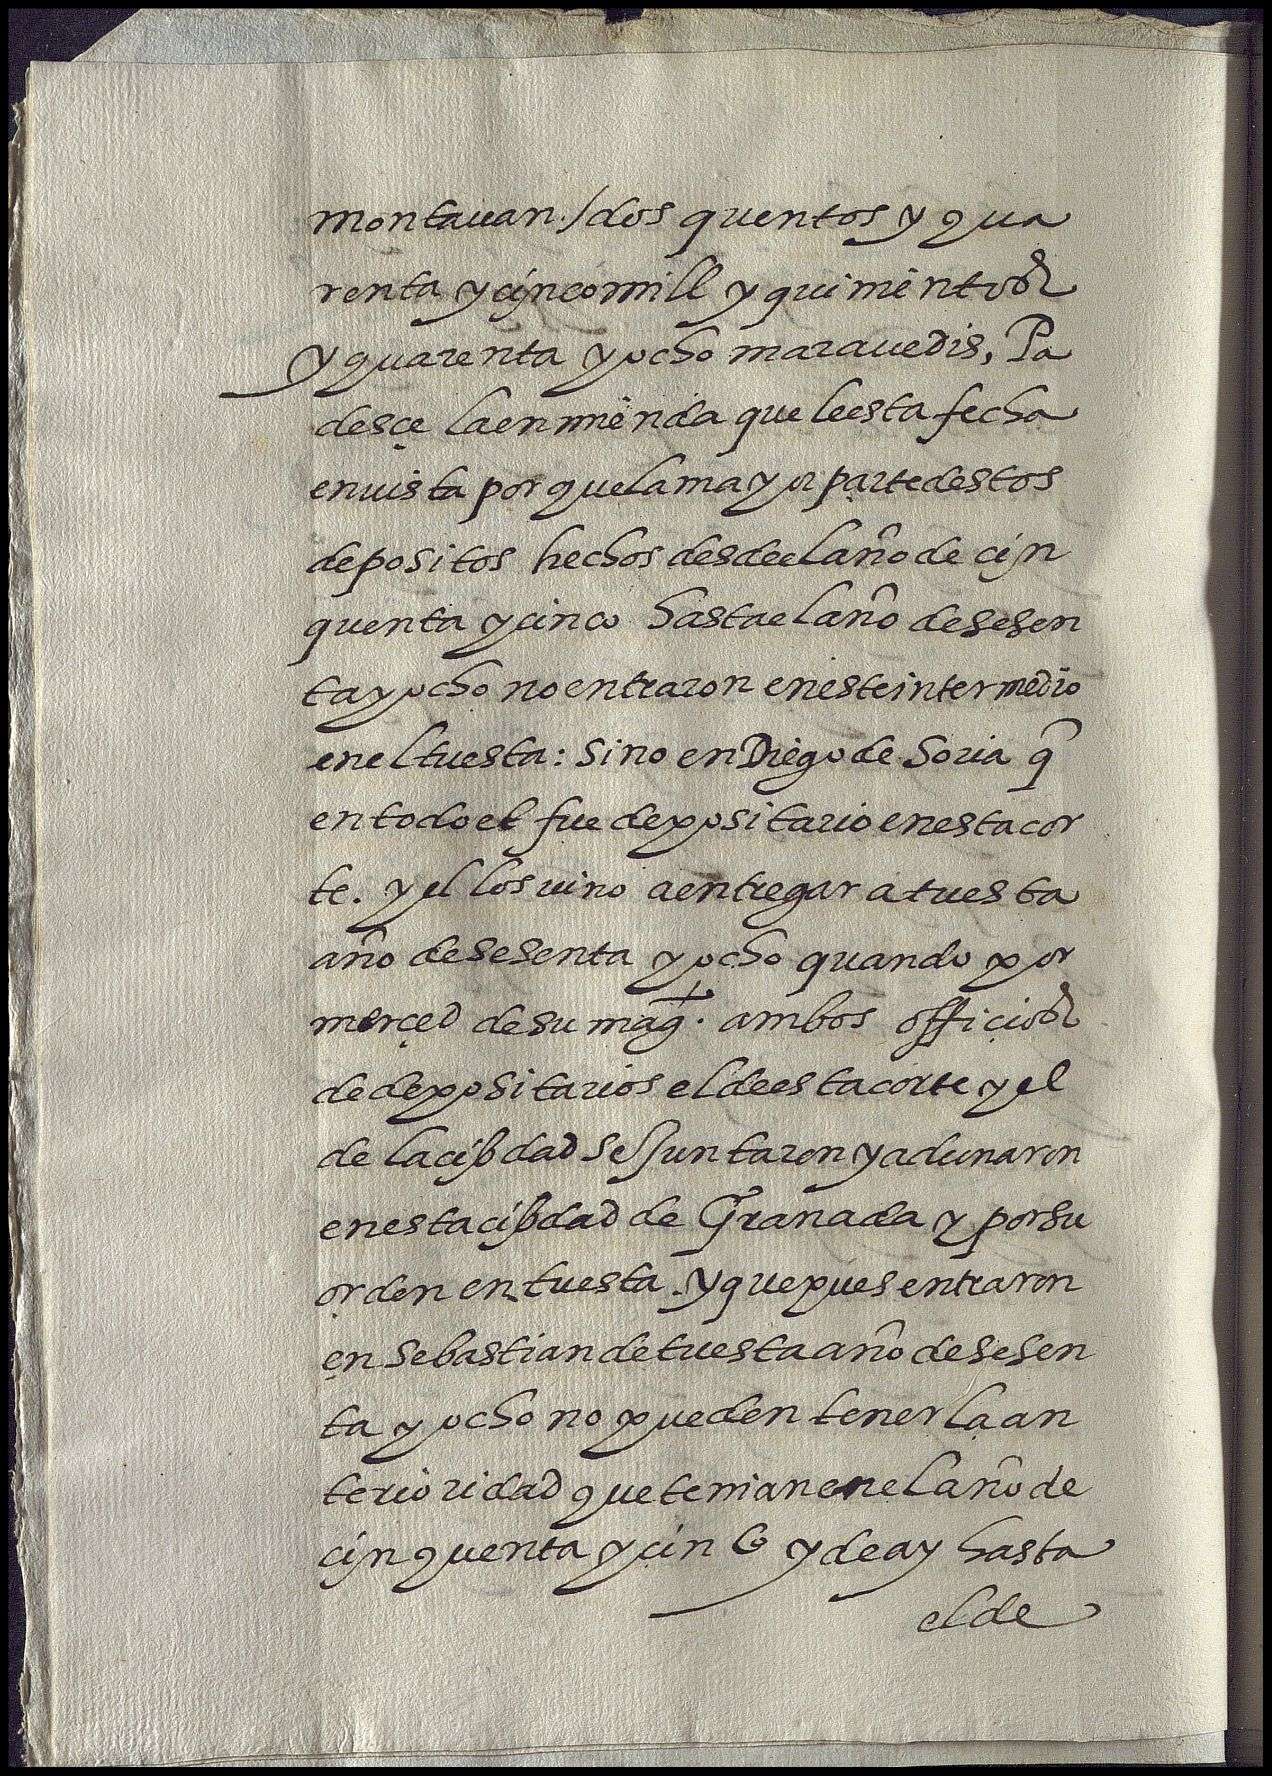 montauan./dos quentos y qua
renta y çinco mill y quinientos
y quarenta y ocho marauedis, Pa
desçe la enmienda que le esta fecha
en uista por que la mayor parte destos
depositos hechos desde el año de çin
quenta y cinco hasta el año de sesen
ta y ocho no entraron en este intermedio
en el tuesta: sino en Diego de Soria q̃
en todo el fue depositario en esta cor
te. y el los uino a entregar a tuesta
año de sesenta y ocho quando por
merçed de su mag.t ambos offiçios
de depositarios el de esta corte y el
de la çibdad se Juntaron y adunaron
en esta çibdad de Granada y por su
orden en tuesta. y que pues entraron
en sebastian de tuesta año de sesen
ta y ocho no pueden tener la an
terioridad que tenian en el año de
çinquenta y çinco y de ay hasta
el de